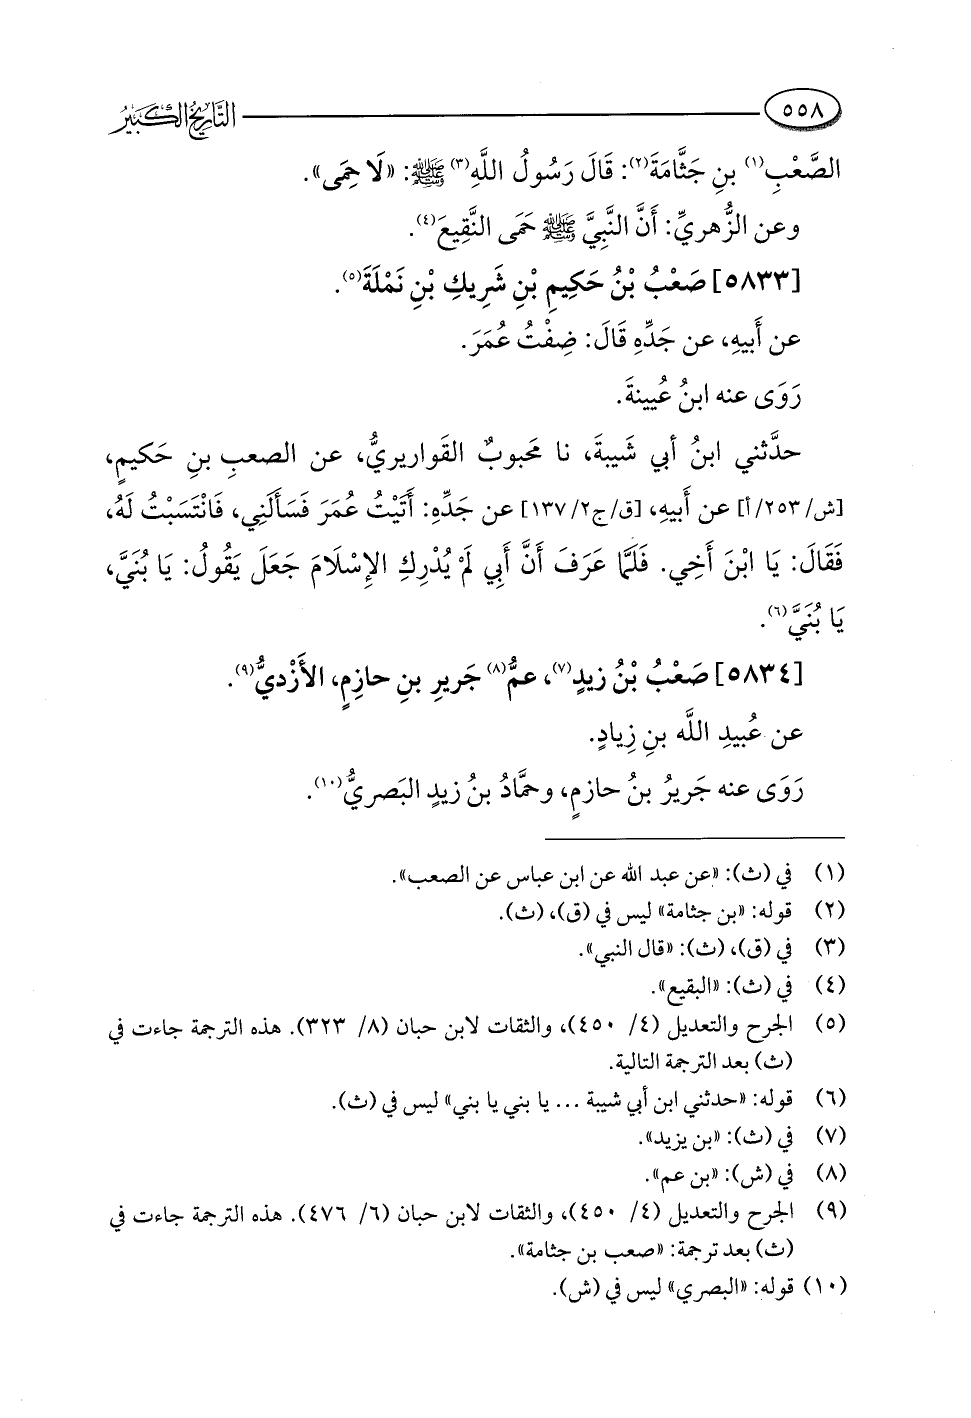 ٥٥٨
التاريخ الكبير
الصَّعْبِ(١) بنِ جَثَّامَةَ(٢): قَالَ رَسُولُ اللَّهِ(٣) ﷺ: «لَا حِمَى».
وعن الزُّهريِّ: أَنَّ النَّبِيَّ ﷺ حَمَى النَّقِيعَ(٤).
[٥٨٣٣] صَعْبُ بْنُ حَكِيمِ بْنِ شَرِيكِ بْنِ نَمْلَةَ(٥).
عن أَبيهِ، عن جَدِّهِ قَالَ: ضِفْتُ عُمَرَ.
رَوَى عنه ابنُ عُيينةَ.
حدَّثني ابنُ أبي شَيبةَ، نا محَبوبٌ القَواريريُّ، عن الصعبِ بنِ حَكيمٍ،
[ش/٢٥٣/أ] عن أَبيهِ، [ق/ج٢/١٣٧] عن جَدِّهِ: أَتَيْتُ عُمَرَ فَسَأَلَنِي، فَانْتَسَبْتُ لَهُ،
فَقَالَ: يَا ابْنَ أَخِي. فَلَمَّا عَرَفَ أَنَّ أَبِي لَمْ يُدْرِكِ الإِسْلَامَ جَعَلَ يَقُولُ: يَا بُنَيَّ،
يَا بُنَيَّ(٦).
[٥٨٣٤] صَعْبُ بْنُ زيدٍ(٧)، عمُّ(٨) جَريرِ بنِ حازِمٍ، الأَزْديُّ(٩).
عن عُبيدِ اللَّه بنِ زِيادٍ.
رَوَى عنه جَريرُ بنُ حازمٍ، وحمَّادُ بنُ زيدٍ البَصريُّ(١٠).
(١) في (ث): «عن عبد الله عن ابن عباس عن الصعب».
(٢) قوله: «بن جثامة» ليس في (ق)، (ث).
(٣) في (ق)، (ث): «قال النبي».
(٤) في (ث): «البقيع».
(٥) الجرح والتعديل (٤/ ٤٥٠)، والثقات لابن حبان (٨/ ٣٢٣). هذه الترجمة جاءت في
(ث) بعد الترجمة التالية.
(٦) قوله: «حدثني ابن أبي شيبة ... يا بني يا بني» ليس في (ث).
(٧) في (ث): «بن يزيد».
(٨) في (ش): «بن عم».
(٩) الجرح والتعديل (٤/ ٤٥٠)، والثقات لابن حبان (٦/ ٤٧٦). هذه الترجمة جاءت في
(ث) بعد ترجمة: «صعب بن جثامة».
(١٠) قوله: «البصري» ليس في (ش).